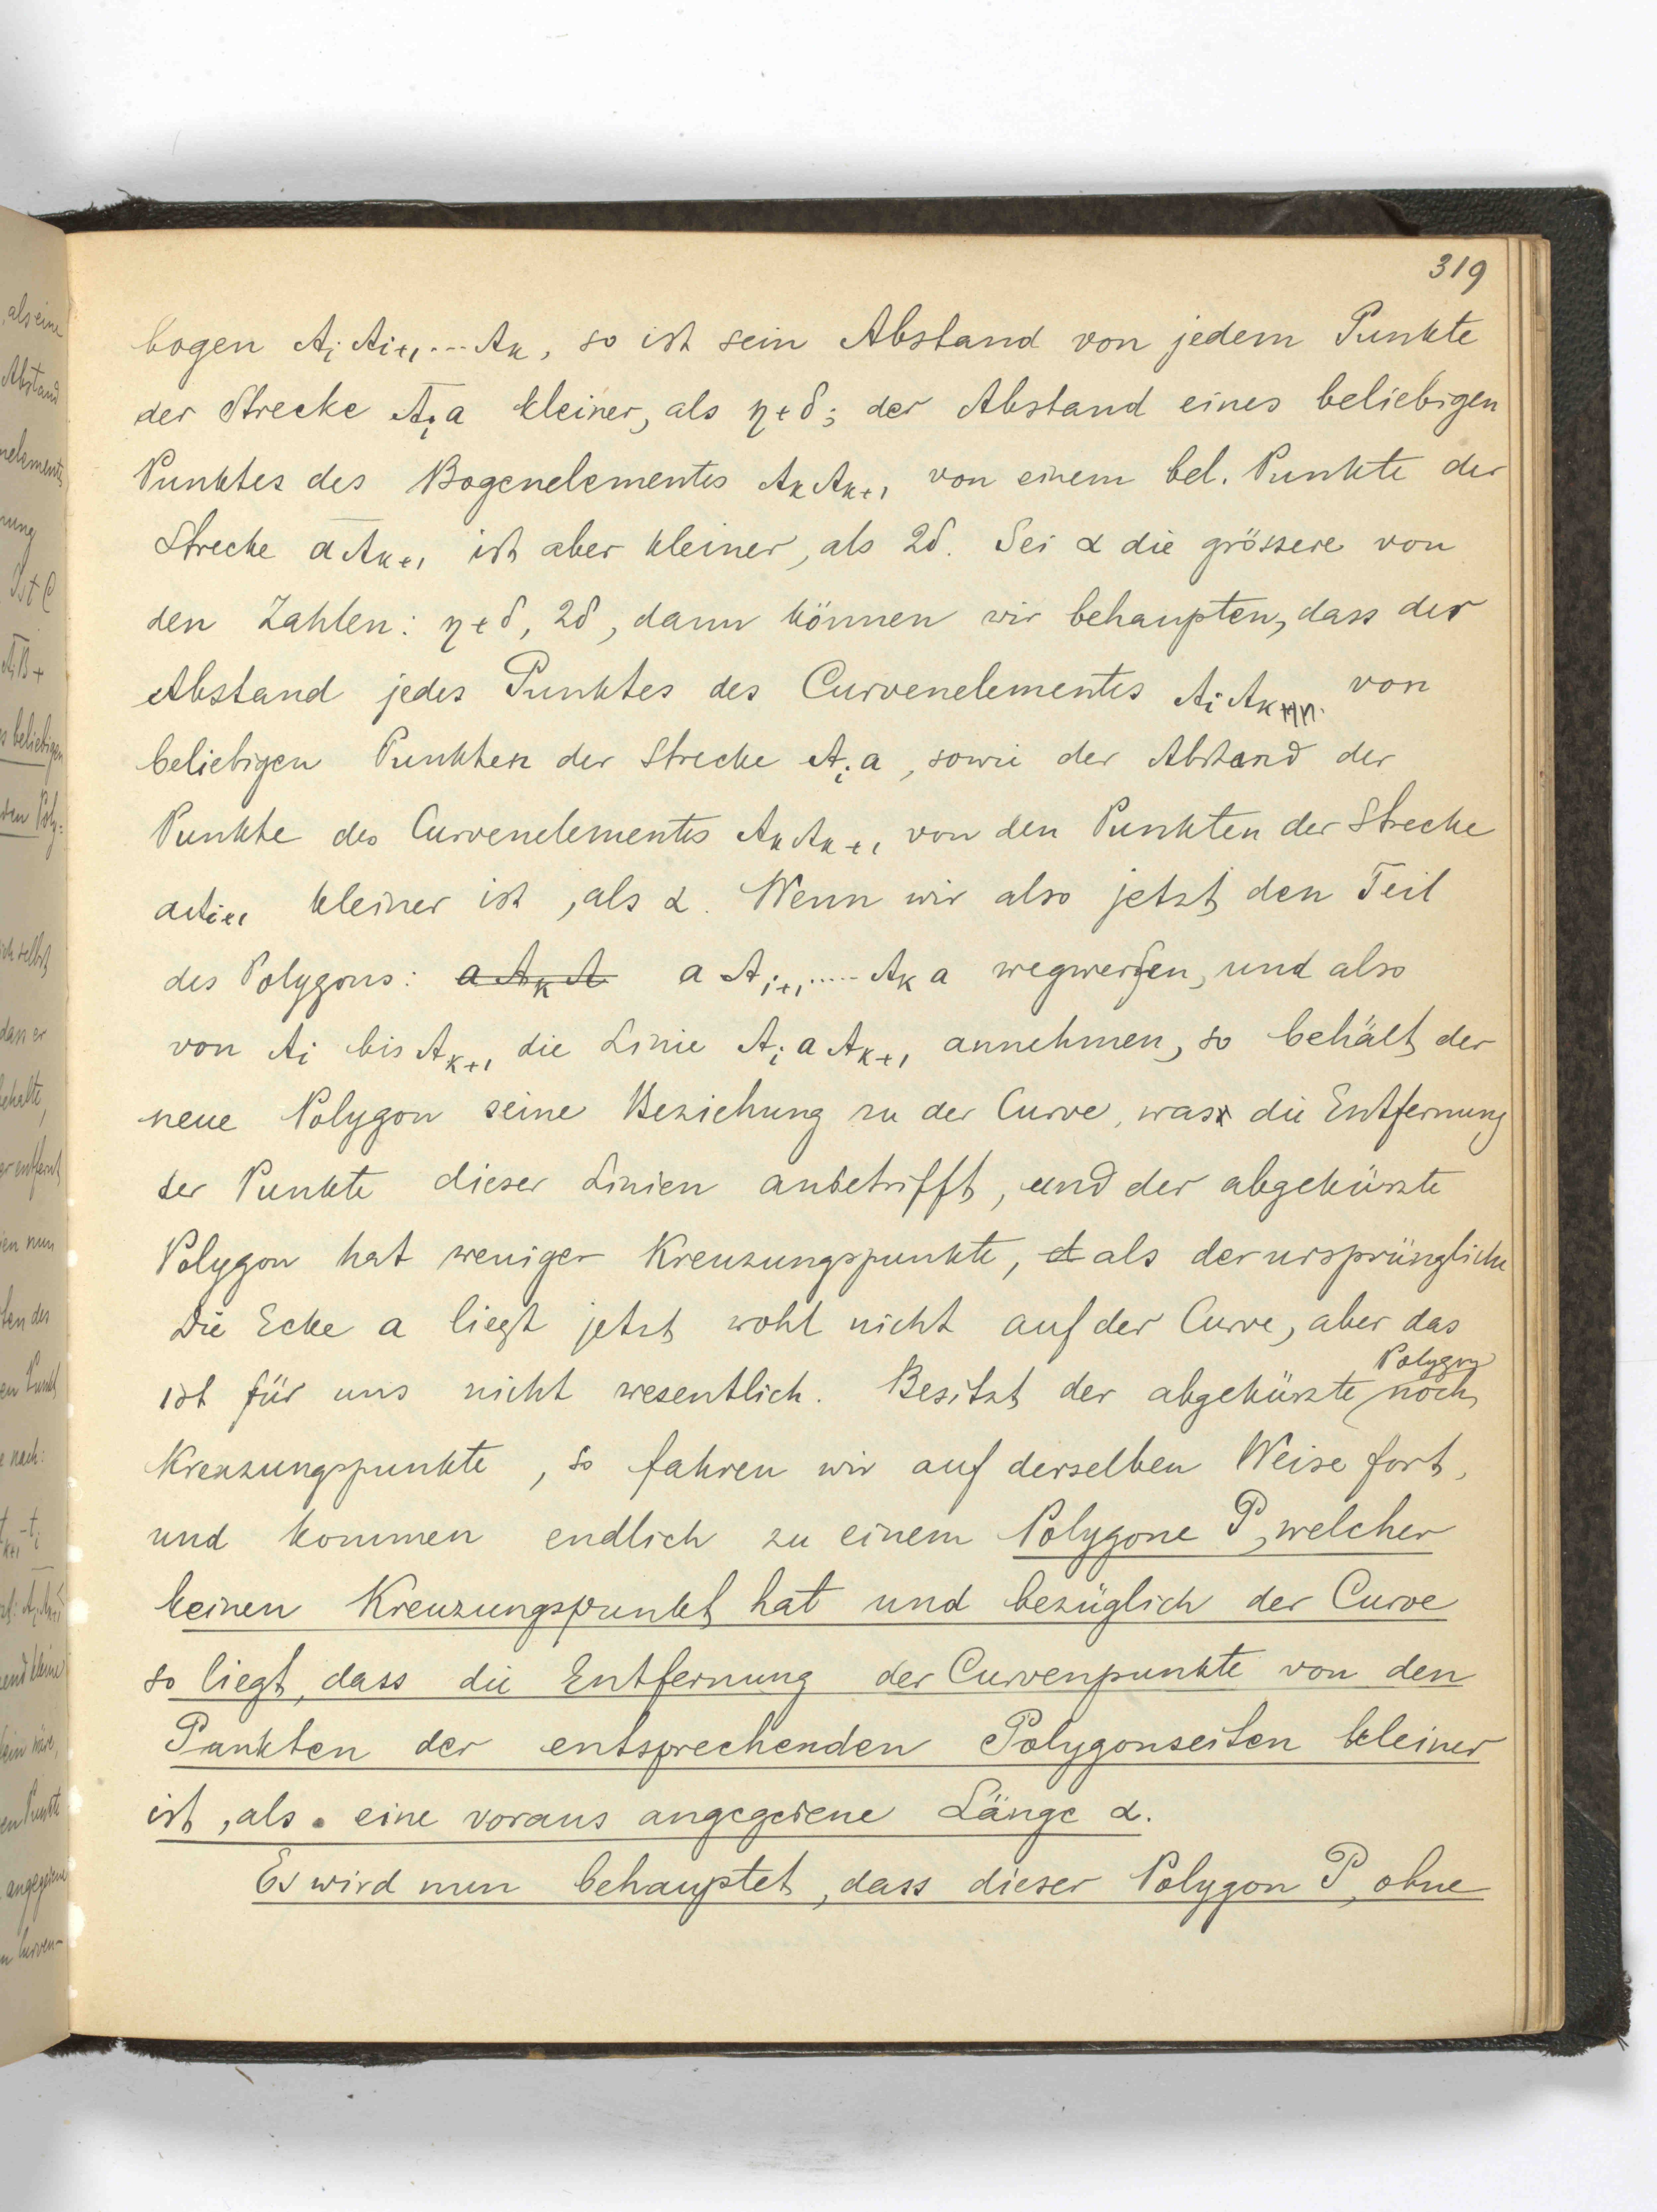 319
bogen AᵢAᵢ₊₁...Aₖ, so ist sein Abstand von jedem Punkte
der Strecke Aᵢa kleiner, als η+δ; der Abstand eines beliebigen
Punktes des Bogenelementes AₖAₖ₊₁ von einem bel. Punkte der
Strecke aAₖ₊₁ ist aber kleiner, als 2δ. Sei α die grössere von
den Zahlen: η+δ, 2δ, dann können wir behaupten, dass der
Abstand jedes Punktes des Curvenelementes AᵢAₖ von
beliebigen Punkten der Strecke Aᵢa, sowie der Abstand der
Punkte des Curvenelementes AₖAₖ₊₁ von den Punkten der Strecke
aAᵢ₊₁ kleiner ist, als α. Wenn wir also jetzt den Teil
des Polygons: aAₖA aAᵢ₊₁.....Aₖa wegwerfen, und also
von Aᵢ bis Aₖ₊₁ die Linie AᵢaAₖ₊₁ annehmen, so behält der
neue Polygon seine Beziehung zu der Curve, was die Entfernung
der Punkte dieser Linien anbetrifft, und der abgekürzte
Polygon hat weniger Kreuzungspunkte, als der ursprüngliche
Die Ecke a liegt jetzt wohl nicht auf der Curve, aber das
ist für uns nicht wesentlich. Besitzt der abgekürzte Polygon noch
Kreuzungspunkte, so fahren wir auf derselben Weise fort,
und kommen endlich zu einem Polygone P, welcher
keinen Kreuzungspunkt hat und bezüglich der Curve
so liegt, dass die Entfernung der Curvenpunkte von den
Punkten der entsprechenden Polygonseiten kleiner
ist, als eine voraus angegebene Länge α.
Es wird nun behauptet, dass dieser Polygon P, ohne